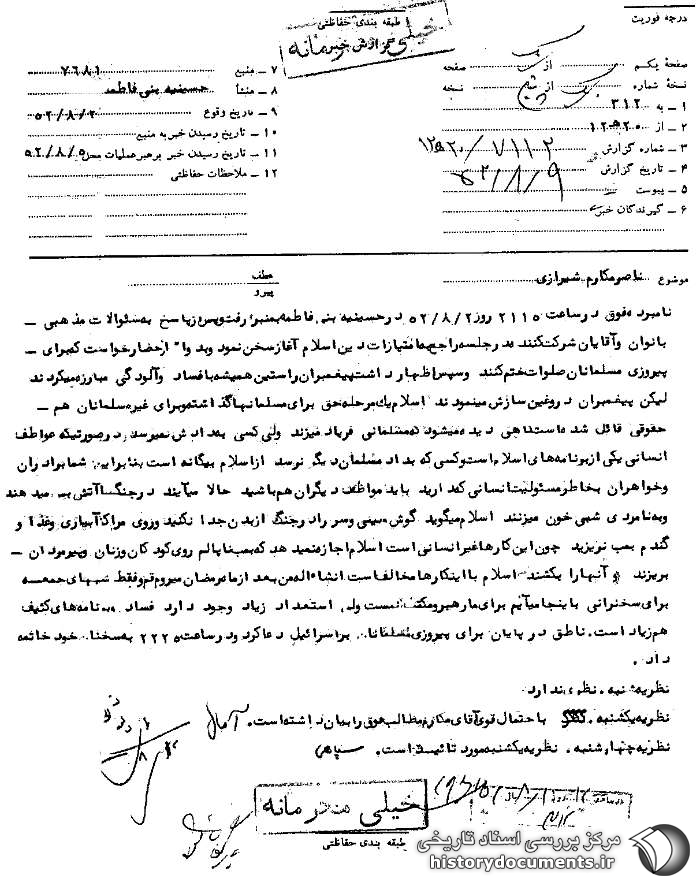 درجه فوریت
طبقه بندی حفاظتی
خیلی محرمانه
گزارش خبر
صفحه یکم از یک صفحه
نسخه شماره یک از پنج نسخه
۱ – به ۳۱۲
۲ – از ۲۰ه۱۲
۳ – شماره گزارش ۷۱۱۰۲/۲۰ه۱۲
۴ – تاریخ گزارش ۵۲/۸/۹
۵ – پیوست
۶ – گیرندگان خبر
۷ – منبع ۷۶۸۱
۸ – منشأ حسینیه بنی فاطمه
۹ – تاریخ وقوع ۵۲/۸/۲
۱۰ – تاریخ رسیدن خبر به منبع
۱۱ – تاریخ رسیدن خبر برهبر عملیات محل ۵۲/۸/۵
۱۲ – ملاحظات حفاظتی
موضوع ناصر مکارم شیرازی
عطف
پیرو
نامبرده فوق در ساعت ۲۱۱۵ روز ۵۲/۸/۲ در حسینیه بنی فاطمه بمنبر رفت و پس از پاسخ به سئوالات مذهبی –
بانوان و آقایان شرکت کننده در جلسه راجع به امتیازات دین اسلام آغاز سخن نمود و بدوا" از حضار خواست که برای –
پیروزی مسلمانان صلوات ختم کنند و سپس اظهار داشت پیغمبران راستین همیشه با فساد و آلودگی مبارزه میکردند
لیکن پیغمبران دروغین سازش مینمودند اسلام یک مرحله حق برای مسلمانها گذاشته و برای غیر مسلمانان هم –
حقوقی قائل شده است گاهی دیده میشود که مسلمانی فریاد میزند ولی کسی بدادش نمیرسد در صورتیکه عواطف
انسانی یکی از برنامه های اسلام است و کسی که بداد مسلمان دیگر نرسد از اسلام بیگانه است بنابراین شما برادران
و خواهران بخاطر مسئولیت انسانی که دارید باید مواظف دیگران هم باشید حالا میآیند در جنگ آتش بس میدهند
و به نامردی شبی خون میزنند اسلام میگوید گوش و بینی و سر را در جنگ از بدن جدا نکنید و روی مراکز آبیاری و غذا و
گندم بمب نریزید چون این کارها غیر انسانی است اسلام اجازه نمیدهد که بمب ناپالم روی کودکان و زنان و پیرمردان –
بریزند و آنها را بکشند اسلام با اینکارها مخالف است انشاءاله من بعد از ماه رمضان میروم قم و فقط شبهای جمعه
برای سخنرانی باینجا میآیم برای ما رهبر و مکتب نیست ولی استعداد زیاد وجود دارد فساد و برنامه های کثیف
هم زیاد است. ناطق در پایان برای پیروزی مسلمانان بر اسرائیل دعا کرد و در ساعت ۲۲۲۰ به سخنان خود خاتمه
داد.
نظریه شنبه. نظری ندارد
نظریه یکشنبه. با احتمال قوی آقای مکارم مطالب فوق را بیان داشته است. آمال
نظریه چهارشنبه. نظریه یکشنبه مورد تائید است.
خیلی محرمانه
طبقه بندی حفاظتی
مرکز بررسی اسناد تاریخی
historydocuments.ir